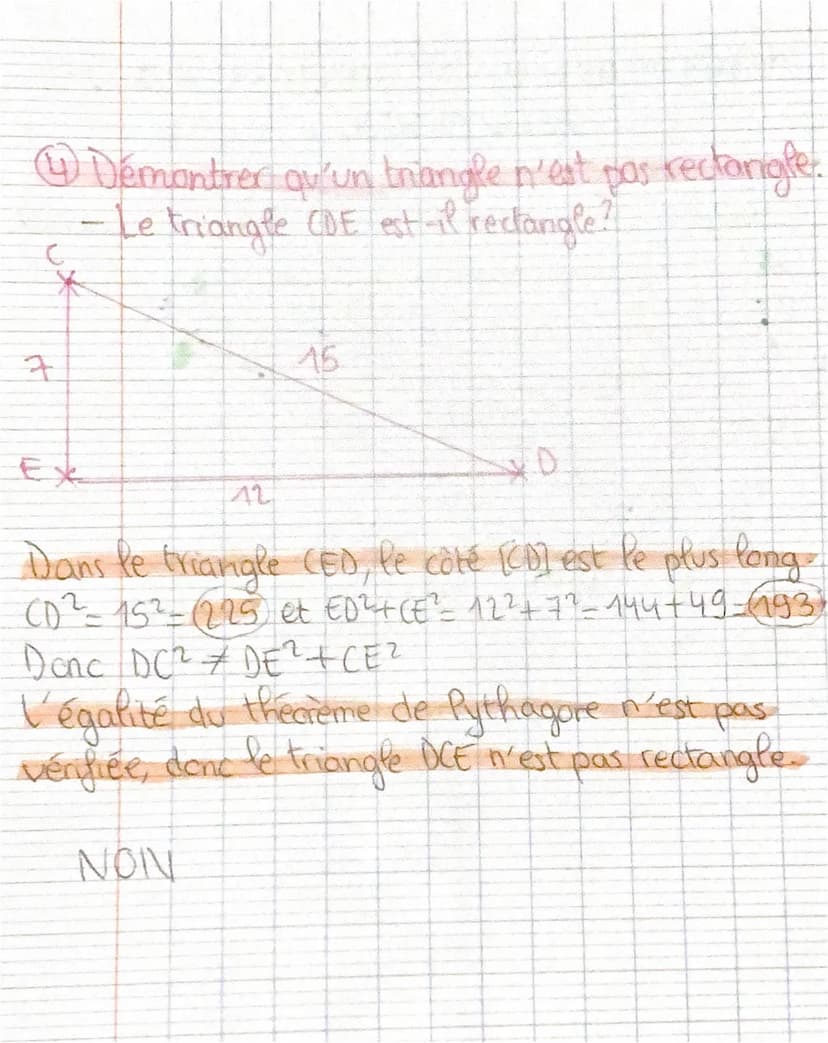 ④ Démontrer qu'un triangle n'est pas rectangle.
- Le triangle CDE est-il rectangle?
C
7
15
E
D
12
Dans le triangle CED, le côté [CD] est le plus long.
CD² = 15² = 225 et ED²+CE² = 12²+7² = 144+49 = 193
Donc DC² ≠ DE²+CE²
L'égalité du théorème de Pythagore n'est pas
vérifiée, donc le triangle DCE n'est pas rectangle.
NON